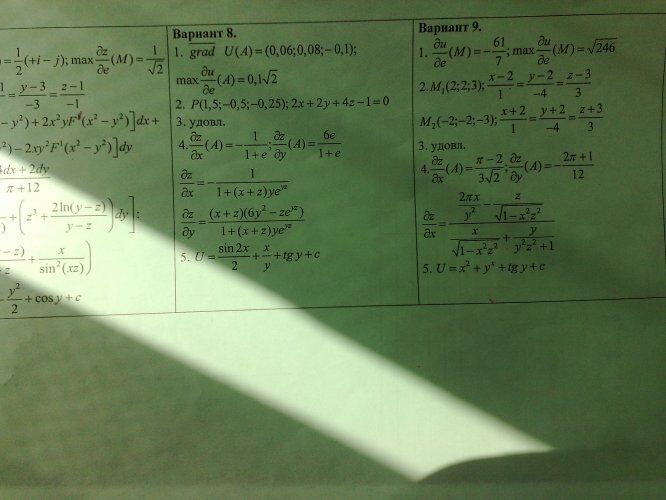 ) = \frac{1}{2}(+i − j); max \frac{∂z}{∂e}(M) = \frac{1}{\sqrt{2}}
\frac{1}{} = \frac{y−3}{−3} = \frac{z−1}{−1}
− y²) + 2x²yF¹(x² − y²)]dx +
²) − 2xy²F¹(x² − y²)]dy
\frac{4dx + 2dy}{π + 12}
+ (z³ + \frac{2ln(y − z)}{y − z})dy]:
\frac{− z)}{z} + \frac{x}{sin²(xz)})
\frac{y²}{2} + cos y + c
Вариант 8.
1. grad U(A) = (0,06; 0,08; −0,1);
max \frac{∂u}{∂e}(A) = 0,1\sqrt{2}
2. P(1,5; −0,5; −0,25); 2x + 2y + 4z − 1 = 0
3. удовл.
4. \frac{∂z}{∂x}(A) = −\frac{1}{1+e}; \frac{∂z}{∂y}(A) = \frac{6e}{1+e}
\frac{∂z}{∂x} = −\frac{1}{1+(x+z)ye^{yz}}
\frac{∂z}{∂y} = \frac{(x+z)(6y² − ze^{yz})}{1+(x+z)ye^{yz}}
5. U = \frac{sin 2x}{2} + \frac{x}{y} + tg y + c
Вариант 9.
1. \frac{∂u}{∂e}(M) = −\frac{61}{7}; max \frac{∂u}{∂e}(M) = \sqrt{246}
2. M₁(2;2;3); \frac{x−2}{1} = \frac{y−2}{−4} = \frac{z−3}{3}
M₂(−2;−2;−3); \frac{x+2}{1} = \frac{y+2}{−4} = \frac{z+3}{3}
3. удовл.
4. \frac{∂z}{∂x}(A) = \frac{π−2}{3\sqrt{2}}; \frac{∂z}{∂y}(A) = −\frac{2π+1}{12}
\frac{∂z}{∂x} = \frac{\frac{2πx}{y²} − \frac{z}{\sqrt{1−x²z²}}}{\frac{x}{\sqrt{1−x²z²}} + \frac{y}{y²z²+1}}
5. U = x² + yˣ + tg y + c